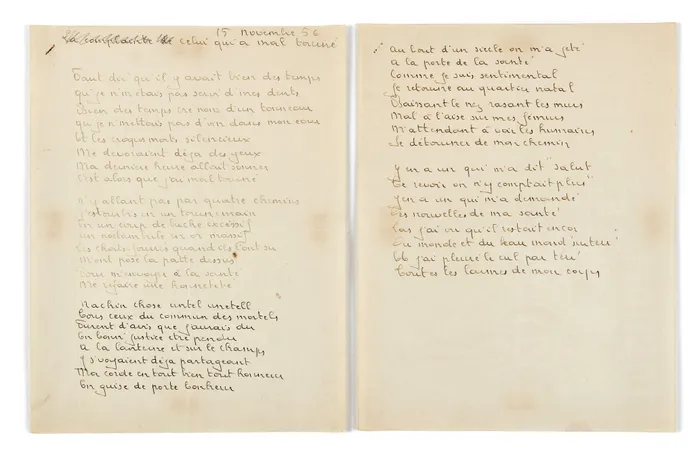 15 novembre 56
La complainte de celui qui a mal tourné
Faut dir' qu'il y avait bien des temps
qu'je n'm'étais pas servi d'mes dents
Bien des temps cré nom d'un tonneau
que je n'mettais pas d'vin dans mon eau
Et les croqu'morts silencieux
Me dévoraient déja des yeux
Ma dernière heure allait sonner
C'est alors que j'ai mal tourné
N'y allant pas par quatre chemins
J'estourbis en un tournemain
En un coup de buche excessif
Un noctambule en or massif
Les chats fourrés quand ils l'ont su
M'ont posé la patte dessus
Pour m'envoyer à la santé
Me refaire une honnêteté
Machin chose untel unetell
Tous ceux du commun des mortels
Furent d'avis que j'aurais du
En bonn' justice être pendu
A la lanterne et sur le champs
Y s'voyaient déja partageant
Ma corde en tout bien tout honneur
En guise de porte bonheur
Au bout d'un siècle on m'a jeté
A la porte de la santé
Comme je suis sentimental
Je retourne au quartier natal
Baissant le nez rasant les murs
Mal à l'aise sur mes fémurs
M'attendant à voir les humains
Se détourner de mon chemin
Y en a un qui m'a dit "salut
Te revoir on n'y comptait plus"
Y en a un qui m'a demandé
Des nouvelles de ma santé
Lors j'ai vu qu'il restait encor
Du monde et du beau mond' sur terr'
Et j'ai pleuré le cul par terr'
Toutes les larmes de mon corps